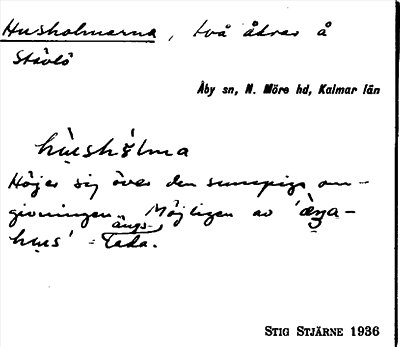 Husholmarna, två åkrar å
Stävlö
Åby sn, N. Möre hd, Kalmar län
hùshólma
Höjer sig över den sumpiga om-
givningen. Möjligen av 'æ̀ŋa-
ängs-
hus' = lada.
STIG STJÄRNE 1936